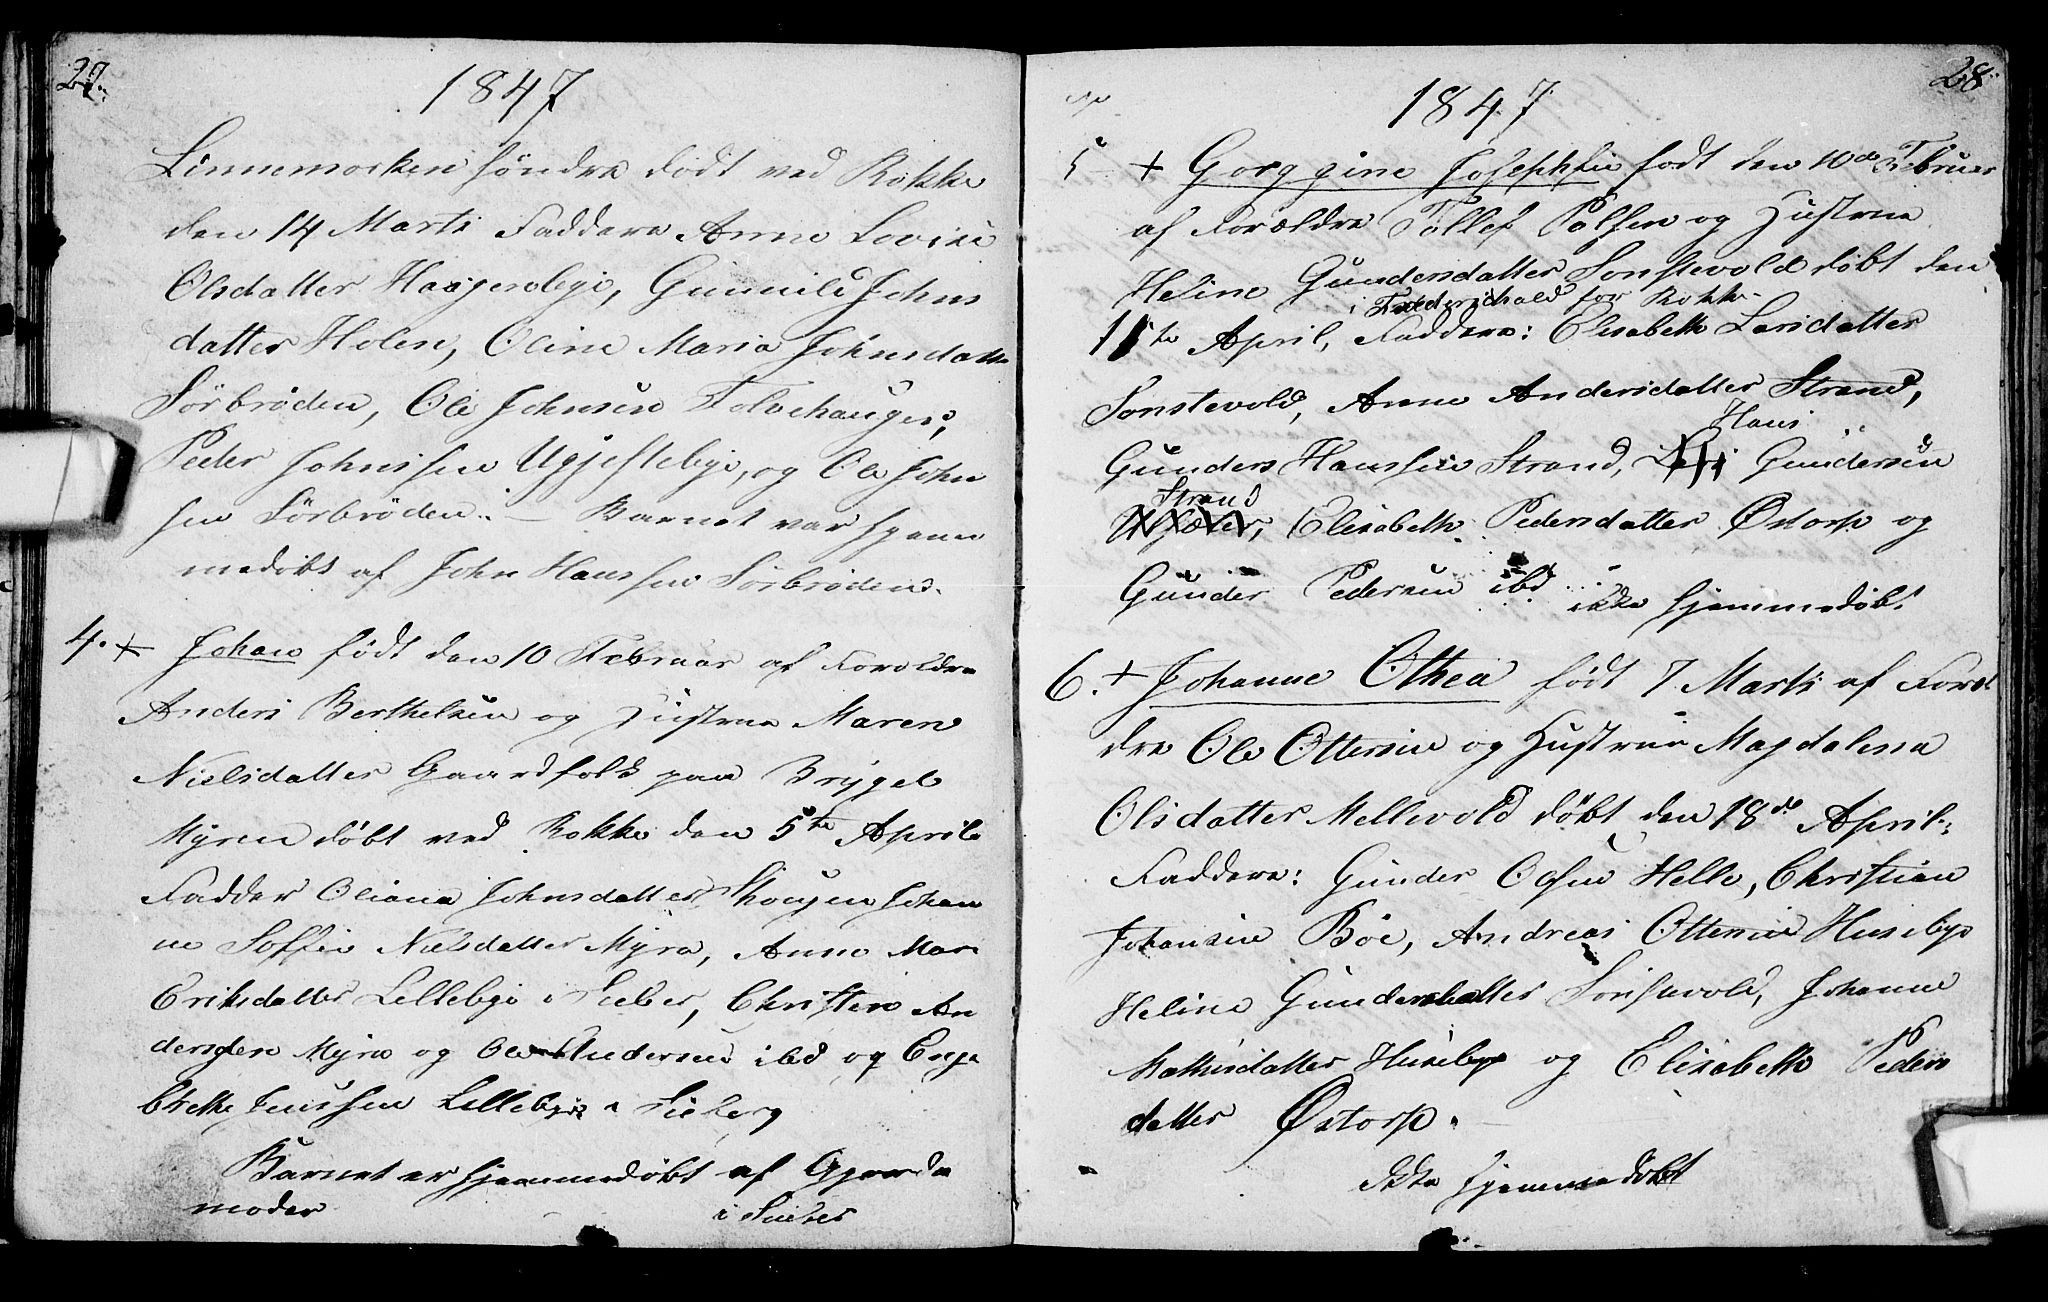 27.
1847
Linnemorken söndre död ved Rokke
den 14 Marti Faddere Anne Lovise
Olsdatter Haagensbye, Gunnild Johns
datter Holen, Oline Maria Johnsdatter
Sörbröden, Ole Johnsen Tolvehaugen,
Peder Johnssen Ugjestebye, og Ole John
sen Sörbröden. — Barnet var hjem
medöbt af John Hanssen Sörbröden.
4. + Johan födt den 10 Februar af Foreldre
Anders Berthelsen og Hustrue Maren
Nielsdatter Gaardfolk paa Brygel
Myren döbt ved Rokke den 5te April
Fadder Oliana Johnsdatter Skougen Johan
ne Soffie Nielsdatter Myra, Anne Mari
Eriksdatter Lillebye i , Christen An
dersen Myra og Ole Andersen ibd og Enge
brette Jenssen Lillebye i
Barnet er hjemmedöbt af Gjorde
moder i
28.
1847
5 + Gorggine Josephie födt den 10de Februar
af Forældre Tollef Polsen og Hustrue
Heline Gundersdatter Sonstevold döbt den
i Frederichald for Rokke
11te April, Faddere: Elisabeth Larsdatter
Sonstevold, Anne Andersdatter Strand,
Hans
Gunders Hanssen Strand, Gundersen
Strand
Elisabeth Pedersdatter Østorp og
Gunder Pedersen ibd ikke hjemmedöbt
6. + Johanne Othea födt 7 Marti af Forel
dre Ole Ottersen og Hustrue Magdalena
Olsdatter Mellevold döbt den 18de April.
Faddere: Gunder Olsen Helle, Christian
Johansen Böe, Andreas Ottersen Husebye
Heline Gundersdatter Sonstevold, Johanne
Mathisdatter Husebye og Elisabeth Peders
datter Østorp. —
Ikke hjemmedöbt